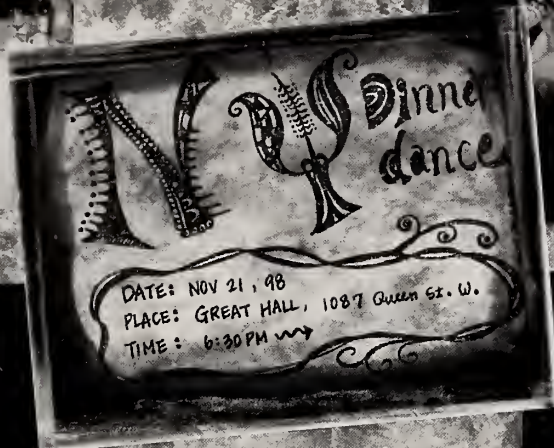 NY Dinner
dance
DATE: NOV 21, 98
PLACE: GREAT HALL, 1087 Queen St. W.
TIME: 6:30PM